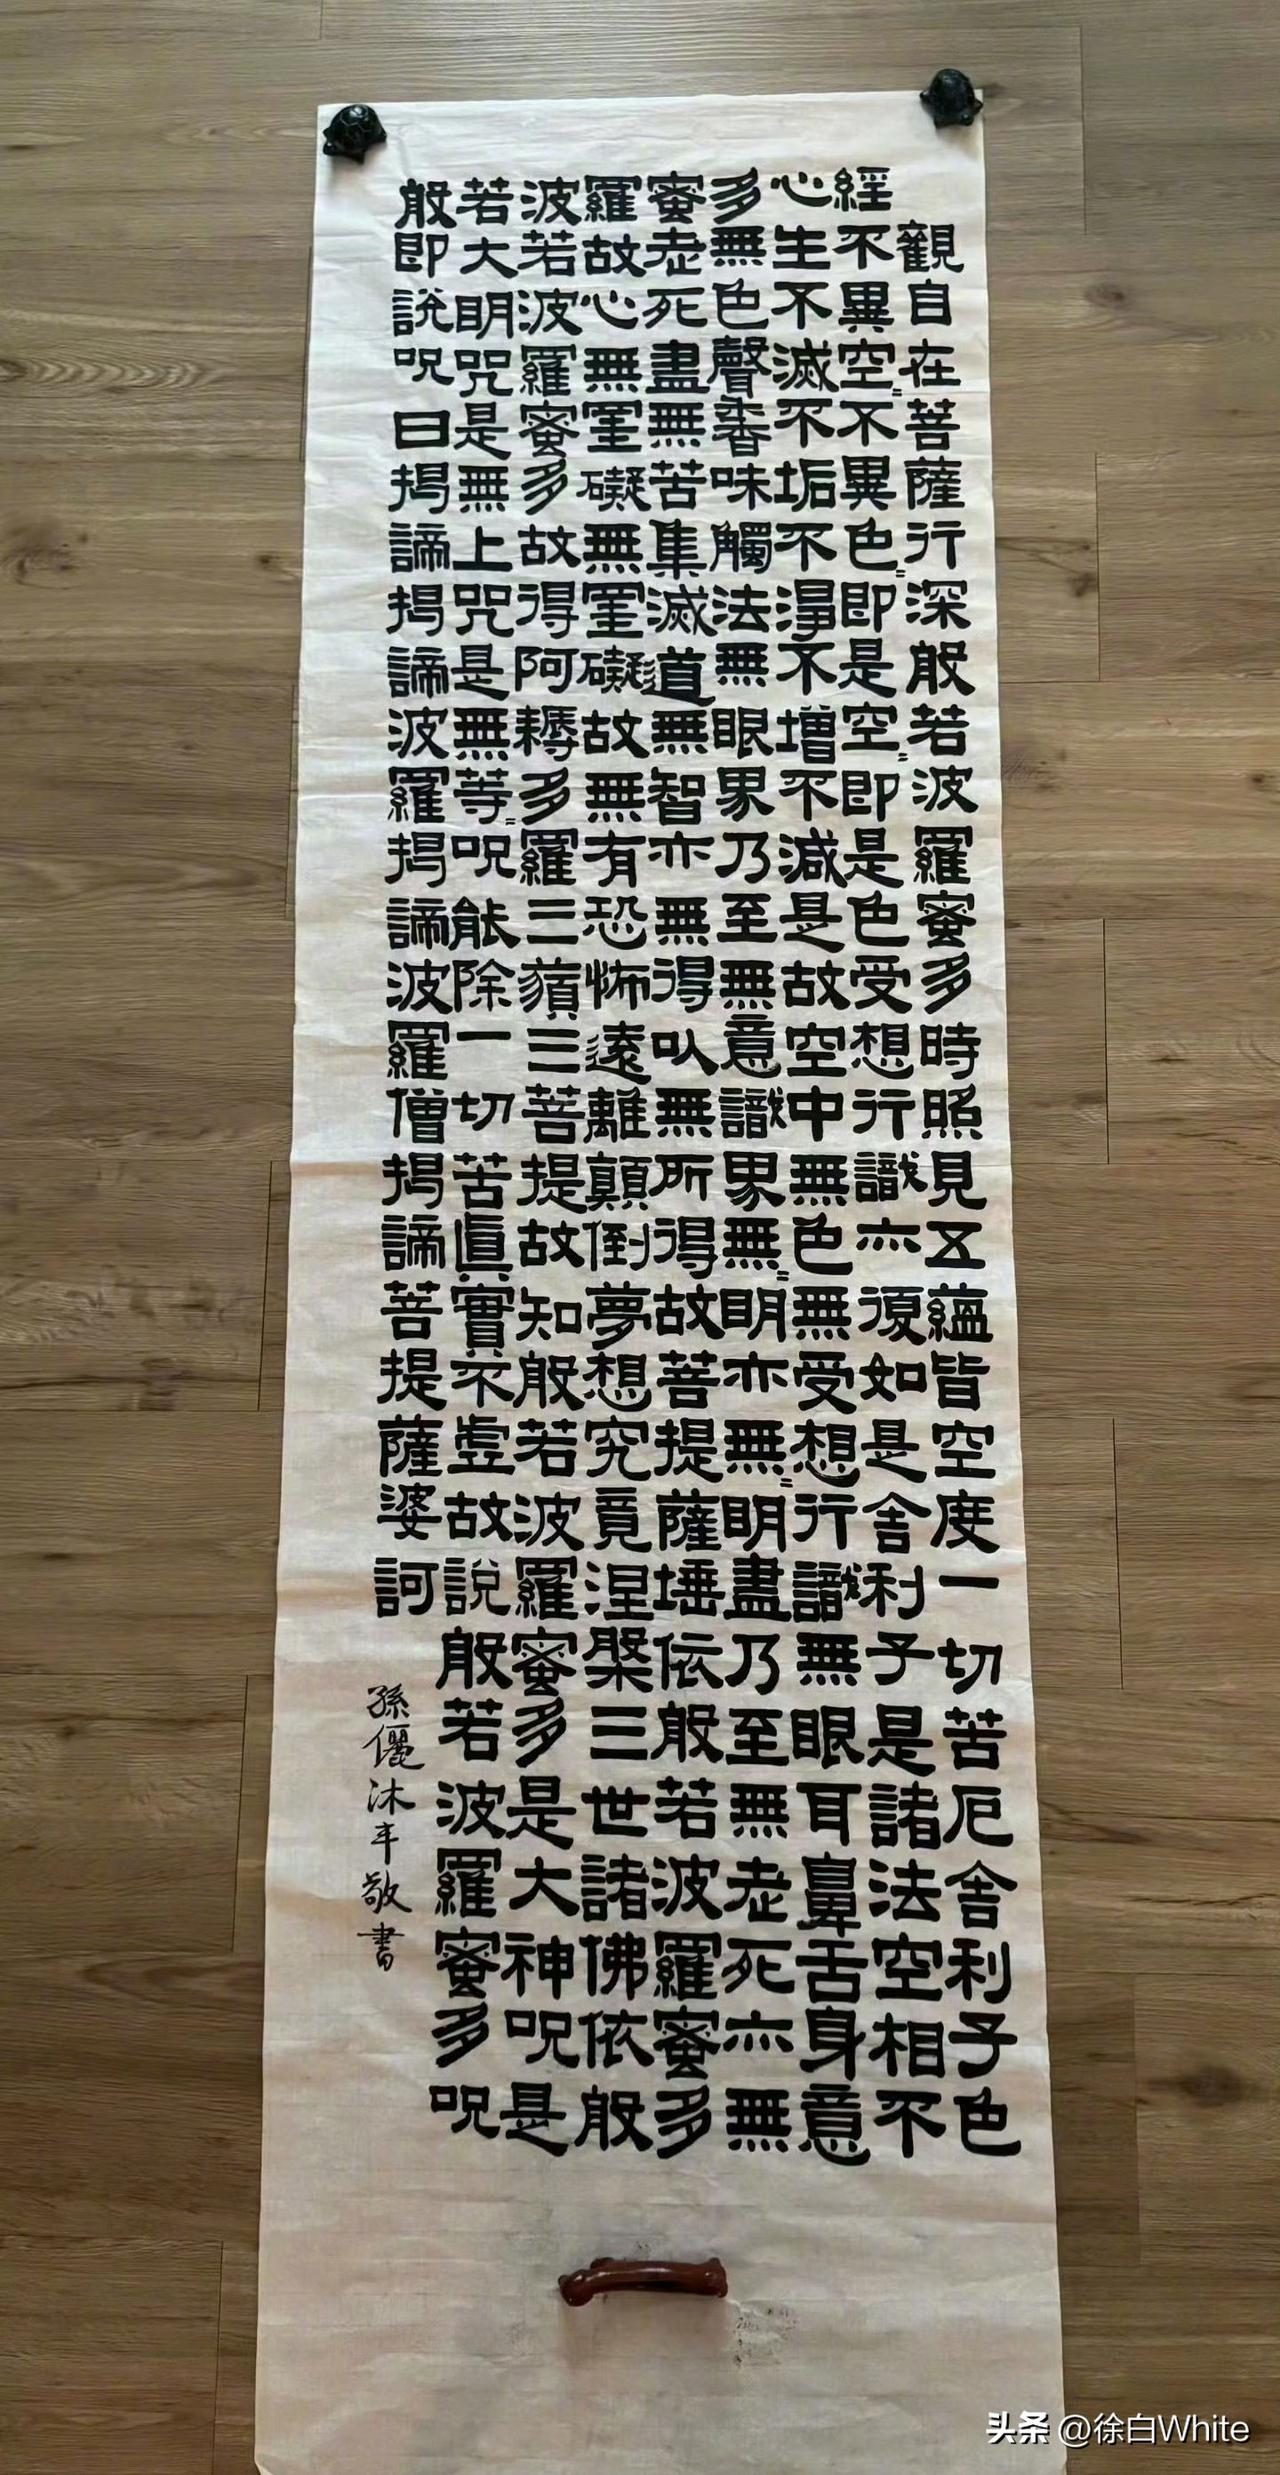 般若波羅蜜多心經
觀自在菩薩行深般若波羅蜜多時照見五蘊皆空度一切苦厄舍利子色
不異空〻不異色〻即是空〻即是色受想行識亦復如是舍利子是諸法空相不
生不滅不垢不淨不增不減是故空中無色無受想行識無眼耳鼻舌身意
無色聲香味觸法無眼界乃至無意識界無〻明亦無〻明盡乃至無老死亦無
老死盡無苦集滅道無智亦無得以無所得故菩提薩埵依般若波羅蜜多
故心無罣礙無罣礙故無有恐怖遠離顛倒夢想究竟涅槃三世諸佛依般
若波羅蜜多故得阿耨多羅三藐三菩提故知般若波羅蜜多是大神呪是
大明咒是無上咒是無等〻呪能除一切苦真實不虛故說般若波羅蜜多呪
即說呪曰揭諦揭諦波羅揭諦波羅僧揭諦菩提薩婆訶
孫儷沐手敬書
头条 @徐白White